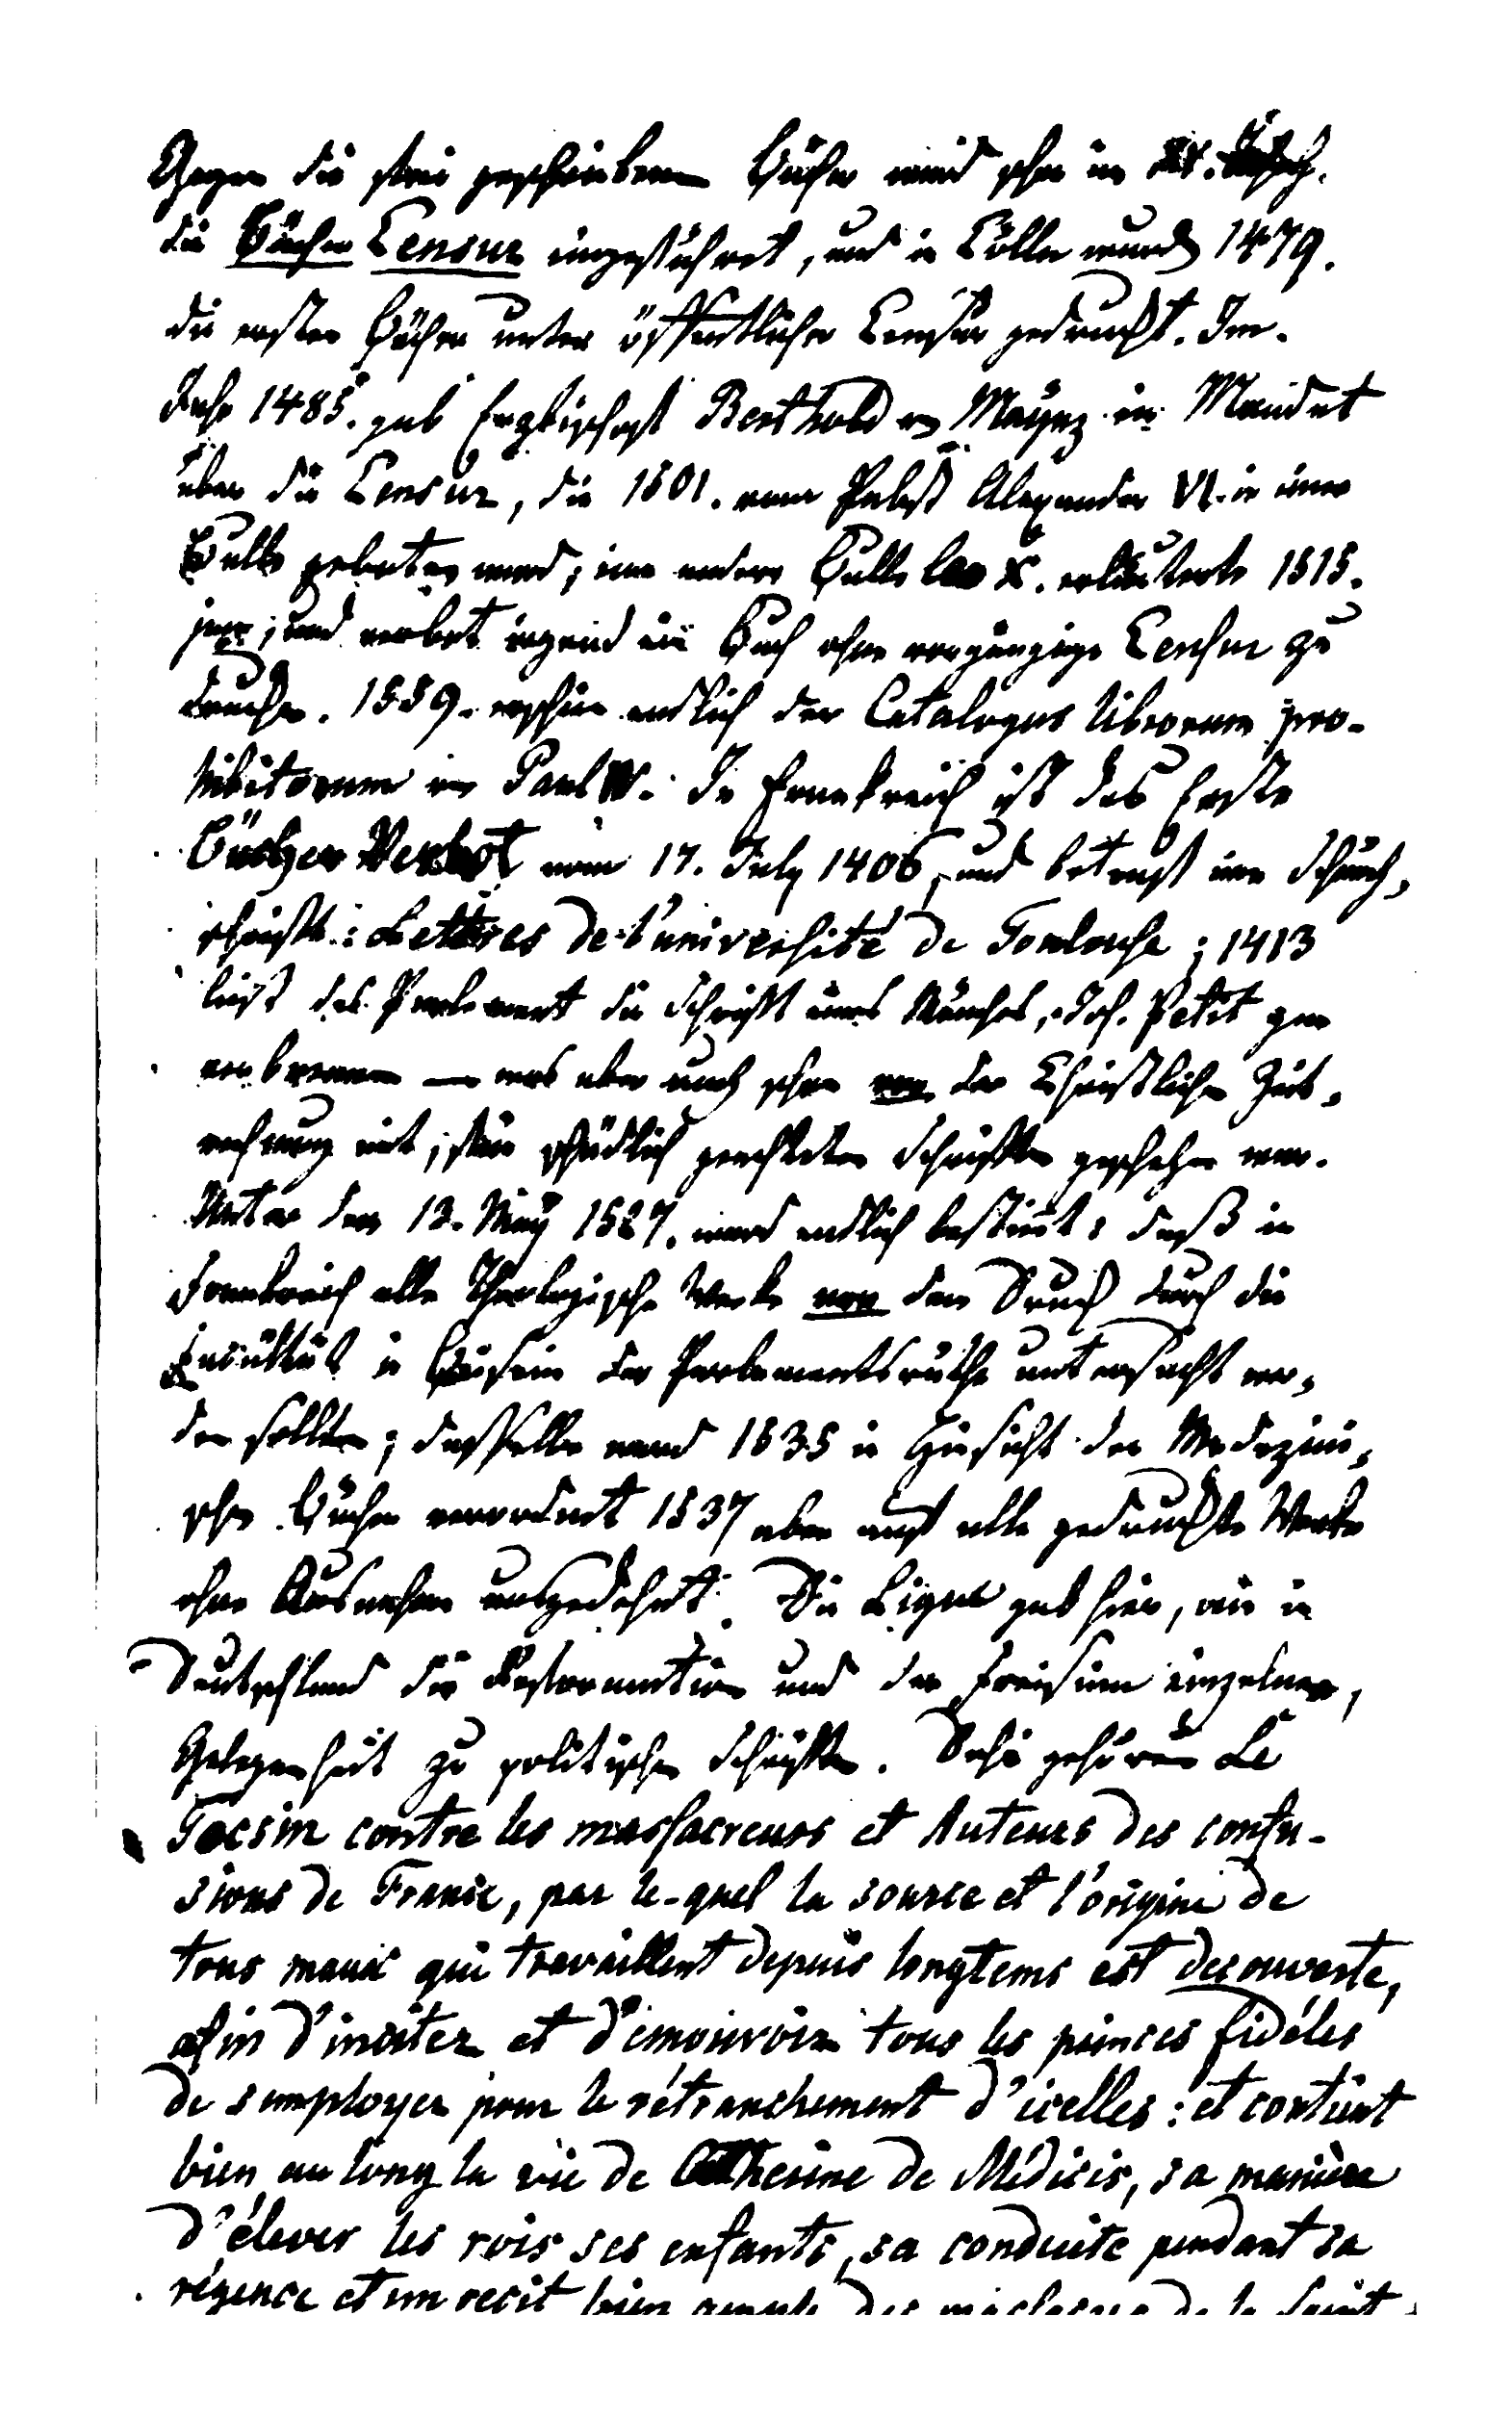 Gegen die frei geschriebenen Bücher wird schon im
die Bücher Censur eingeführet, und in Cölln wurd 1479.
die ersten Bücher unter öffentlicher Censur gedruckt. Im
Jahr 1485. gab Erzbischoff Berthold von Maynz ein Mandat
über die Censur, die 1501. vom Pabst Alexander VI. in einer
Bulle geboten ward; eine andere Bulle Leo X. erläuterte 1515.
jene, und verbot irgend ein Buch ohne vorgängige Censur zu
drucken. 1559. erschien endlich der Catalogus librorum pro-
hibitorum von Paul IV. In Frankreich ist das Erste
Bücher Verbot vom 17. July 1406, und betraf eine Schmäh-
schrift: Lettres de l'université de Toulouse; 1413
ließ das Parlement die Schrift eines Mönches, Joh. Petit
verbrennen — was aber auch schon vor der Christlichen Zeit-
rechnung mit, für schädlich geachteten Schriften geschehen war.
Unter dem 13. May 1527. ward endlich bestimt: daß in
Frankreich alle Theologische Werke vor dem Druck durch die
Facultät in Beisein der Parlamentsräthe untersucht wer-
den sollten; dasselbe ward 1535 in Hinsicht der Medezini-
schen Bücher verordnet 1537 aber auf alle gedruckte Werke
ohne Ausnahme ausgedehnt. Die Ligue gab hier, wie in
Deutschland die Reformation und der Freisinn einzelner,
Gelegenheit zu politischen Schriften. Dahin gehören Le
Tocsin contre les massacreurs et Auteurs des confu-
sions de France, par le-quel la source et l'origine de
tous maux qui travaillent depuis longtems est decouverte,
afin d'inciter et d'émouvoir tous les princes fidéles
de s'employer pour le rétranchement d'icelles: et contient
bien au long la vie de Catherine de Médicis, sa manière
d'élever les rois ses enfants, sa conduite pendant sa
régence et un recit bien ample des massacres de la Saint